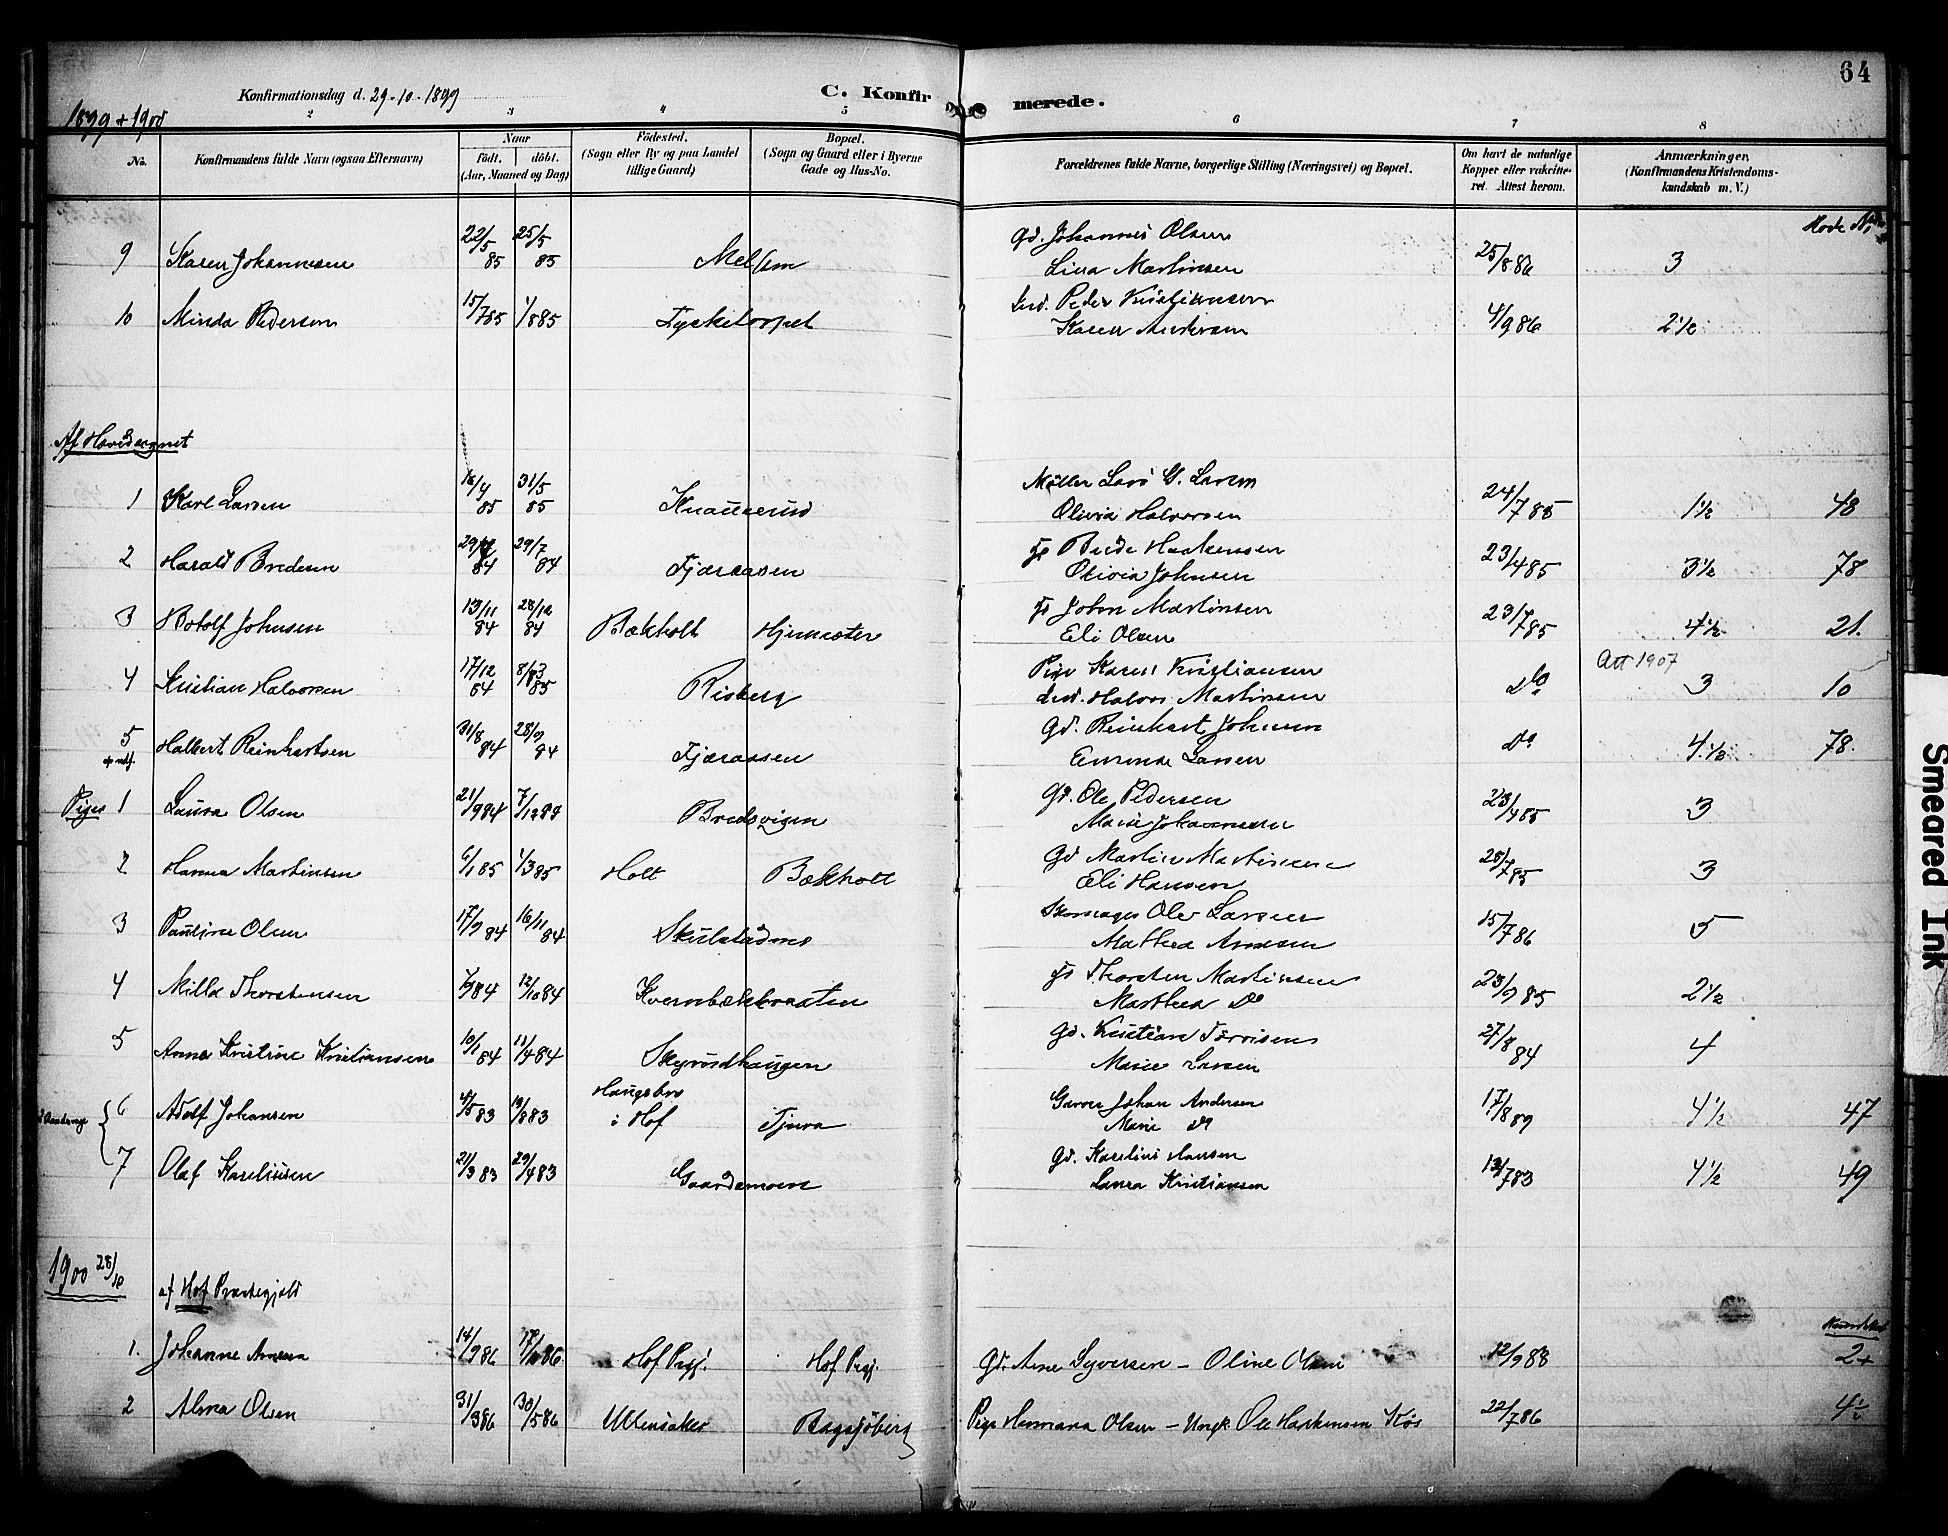 64
Konfirmationsdag d. 29-10-1899
C. Konfir merede.
1899 + 1900
2 3 4 5 6 7 8
No.
Konfirmandens fulde Navn (ogsaa Efternavn)
Naar
födt. döbt.
(Aar, Maaned og Dag)
Födested.
(Sogn eller By og paa Landet
tillige Gaard)
Bopæl.
(Sogn og Gaard eller i Byerne
Gade og Hus-No.
Forældrenes fulde Navne, borgerlige Stilling (Næringsvei) og Bopæl.
Om havt de naturlige
Kopper eller vakcine-
ret. Attest herom.
Anmærkninger.
(Konfirmandens Kristendoms-
kundskab m. V.)
9 Karen Johannesen 22/5 85 25/5 85 Melsom Gd. Johannes Olsen 25/8 86 3
Lina Martinsen
10 Minda Pedersen 15/7 85 1/8 85 Tysketorpet Ind. Peder Kristiansen 4/9 86 2 1/2
Karen Andersen
Af Hovedsognet
1 Karl Larsen 16/4 85 31/5 85 Knauserud Möller Lars G. Larsen 24/7 85 1 1/2 48
Olivia Halvorsen
2 Harald Bredesen 84 29/7 84 Fjæraasen Brede Haakensen 23/4 85 3 1/2 78
Olivia Johnsen
3 Botolf Johnsen 13/11 84 28/12 84 Bækholt John Martinsen 23/7 85 4 1/2 21.
Eli Olsen
4 Kristian Halvorsen 17/12 84 85 Risberg Pige Karen Kristiansen Do Att 1907 3 10
Halvor Martinsen
5 Halbert Reinhartsen 31/8 84 28/9 84 Fjæraasen Gd. Reinhart Johnsen Do 4 1/2 78.
Larsen
Piger 1 Laura Olsen 21/9 84 7/12 84 Bredsvigen Gd. Ole Pedersen 23/4 85 3
Marie Johannesen
2 Hanna Martinsen 6/1 85 1/3 85 Holt Bækholt Gd Martin Martinsen 28/7 85 3
Eli Hansen
3 Pauline Olsen 17/9 84 16/11 84 Skulstadmo Skomager Ole Larsen 15/7 86 5
Mathea Arnesen
4 Milla Thorstensen 84 12/10 84 Kvernbækbraaten Thorsten Martinsen 23/9 85 2 1/2
Marthea Do
5 Anna Kristine Kristiansen 10/1 84 11/4 84 Skyrudhaugen Gd. Kristian 27/8 84 4
Marie Larsen
6 Adolf Johansen 4/5 83 19/8 83 Haugsbro i Hof Tjura Garver Johan Andersen 17/8 89 4 1/2 47
Marie Do
7 Olaf Kareliusen 21/3 83 29/4 83 Gaardsmoen Gd. Karelius Hansen 13/7 83 4 1/2 49
Laura Kristiansen
1900 28/10
af Hof Præstegjeld
1. Johanne Arnesen 14/9 86 17/10 86 Hof Prgj. Hof Prgj. Gd. Arne Syversen - Oline Olsen 12/9 88 2+
2 Alma Olsen 31/3 86 30/5 86 Ullensaker Bagsjöberg Pige Hermana Olsen - Ungk Ole Haakensen 22/7 86 4 1/2
Smeared Ink